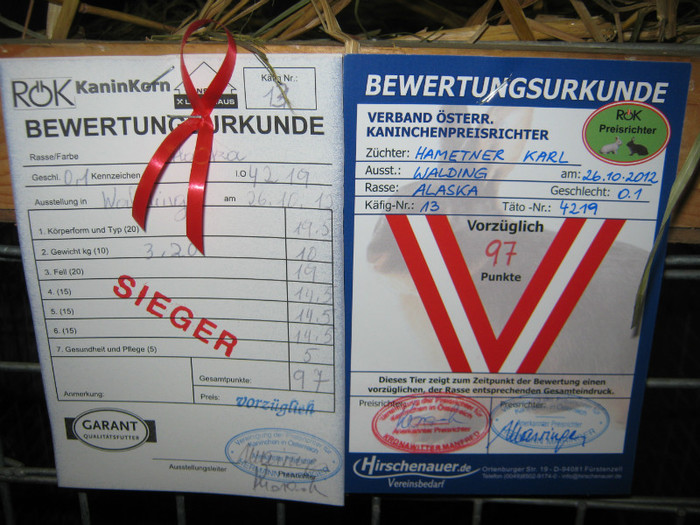 RÖK KaninKorn
Käfig Nr.:
13
BEWERTUNGSURKUNDE
Rasse/Farbe
Geschl. 0,1 Kennzeichen I.O 4219
Ausstellung in Walding am 26.10.12
1. Körperform und Typ (20) 19,5
2. Gewicht kg (10) 3,20 10
3. Fell (20) 19
4. (15) 14,5
5. (15) 14,5
6. (15) 14,5
7. Gesundheit und Pflege (5) 5
SIEGER
Gesamtpunkte: 97
Preis: vorzüglich
Anmerkung:
GARANT
QUALITÄTSFUTTER
Ausstellungsleiter
BEWERTUNGSURKUNDE
VERBAND ÖSTERR.
KANINCHENPREISRICHTER
RÖK
Preisrichter
Züchter: HAMETNER KARL
Ausst.: WALDING am: 26.10.2012
Rasse: ALASKA Geschlecht: 0.1
Käfig-Nr.: 13 Täto -Nr.: 4219
Vorzüglich
97
Punkte
Dieses Tier zeigt zum Zeitpunkt der Bewertung einen
vorzüglichen, der Rasse entsprechenden Gesamteindruck.
Preisrichter: Preisrichter:
KRONAWITTER MANFRED
Hirschenauer.de
Vereinsbedarf
Ortenburger Str. 19 - D-94081 Fürstenzell